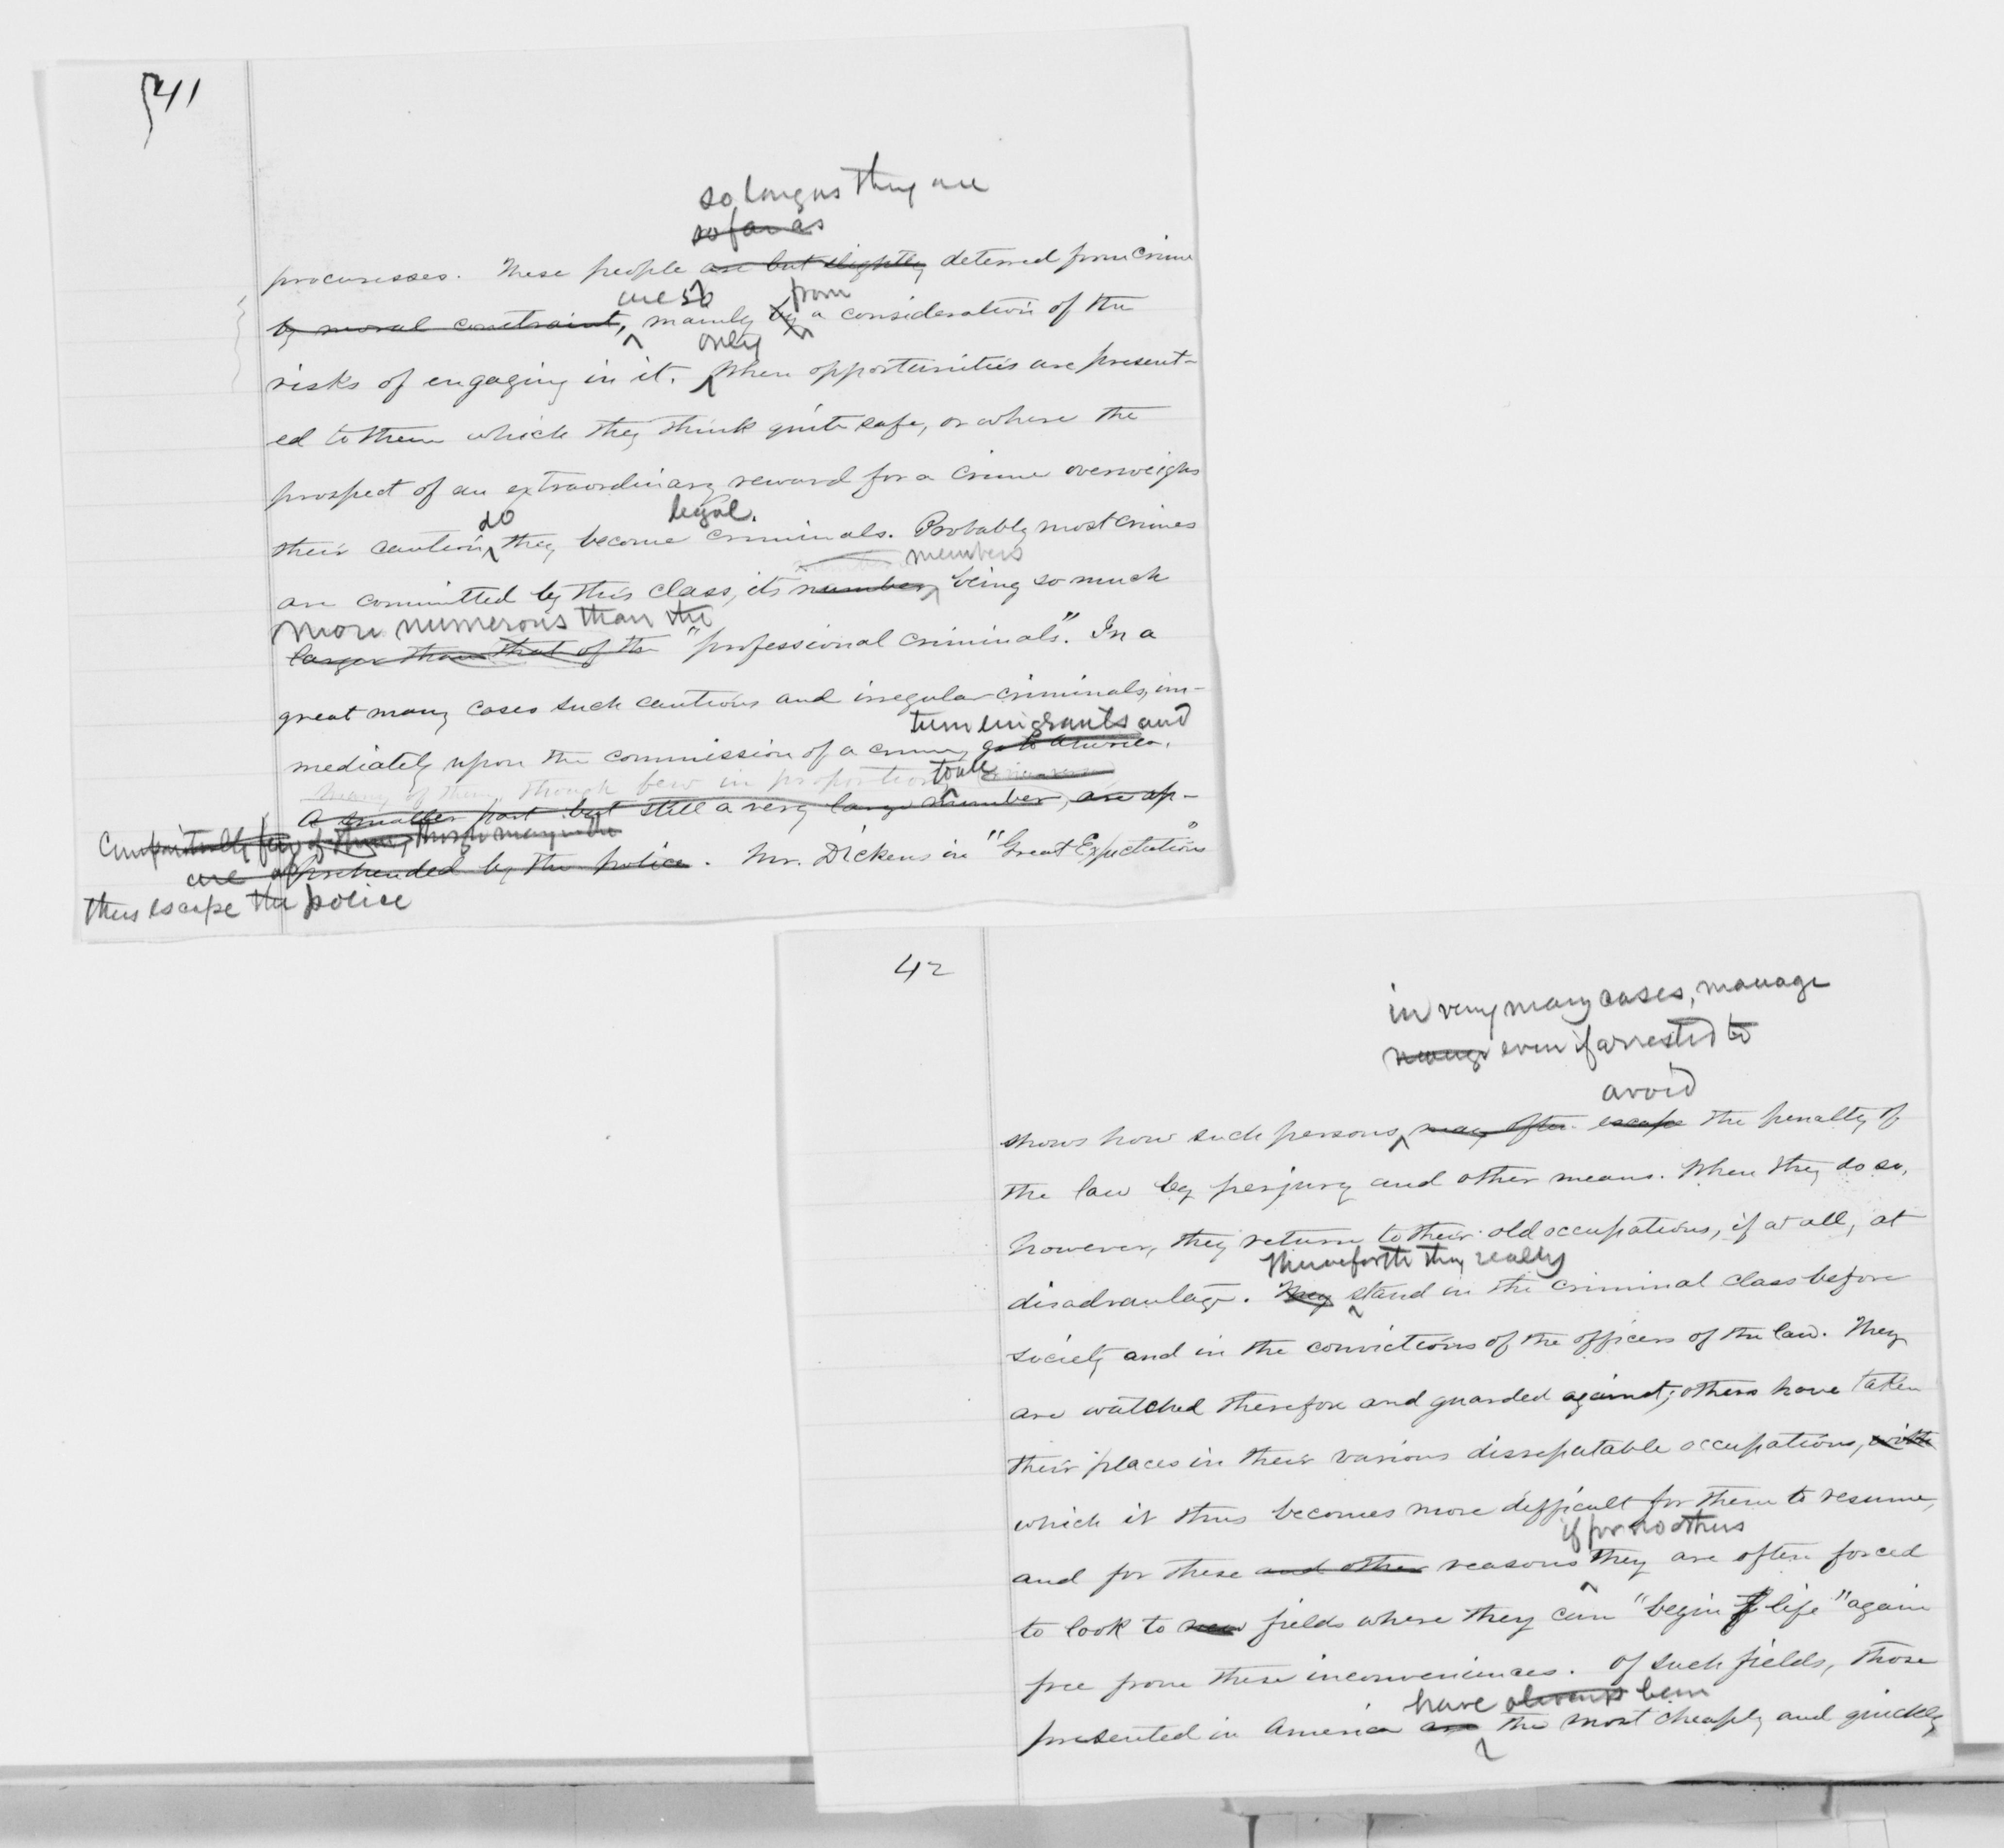 41
so long as they are
so far as
procuresses. These people are but slightly deterred from crime
are so from
by moral constraint, mainly by a consideration of the
only
risks of engaging in it. When opportunities are present-
ed to them which they think quite safe, or where the
prospect of an extraordinary reward for a crime overweighs
do legal
their caution, they become criminals. Probably most crimes
members
are committed by this class, its number, being so much
more numerous than the
larger than that of the "professional criminals". In a
great many cases such cautious and irregular criminals, im-
turn emigrants and
mediately upon the commission of a crime, go to America.
many of them, though few in proportion to all
A smaller part but still a very large number, are ap-
Comparatively few of them, though many in the
are apprehended by the police. Mr. Dickens in "Great Expectations
thus escape the police
42
in very many cases, manage
manage even if arrested to
avoid
shows how such persons, may often escape the penalty of
the law by perjury and other means. When they do so,
however, they return to their old occupations, if at all, at
Thenceforth they really
disadvantage. They stand in the criminal class before
society and in the convictions of the officers of the law. They
are watched therefore and guarded against; others have taken
their places in their various disreputable occupations, with
which it thus becomes more difficult for them to resume,
if for no others
and for these and other reasons they are often forced
to look to new fields where they can "begin life" again
free from these inconveniences. Of such fields, those
have always been
presented in America are the most cheaply and quickly